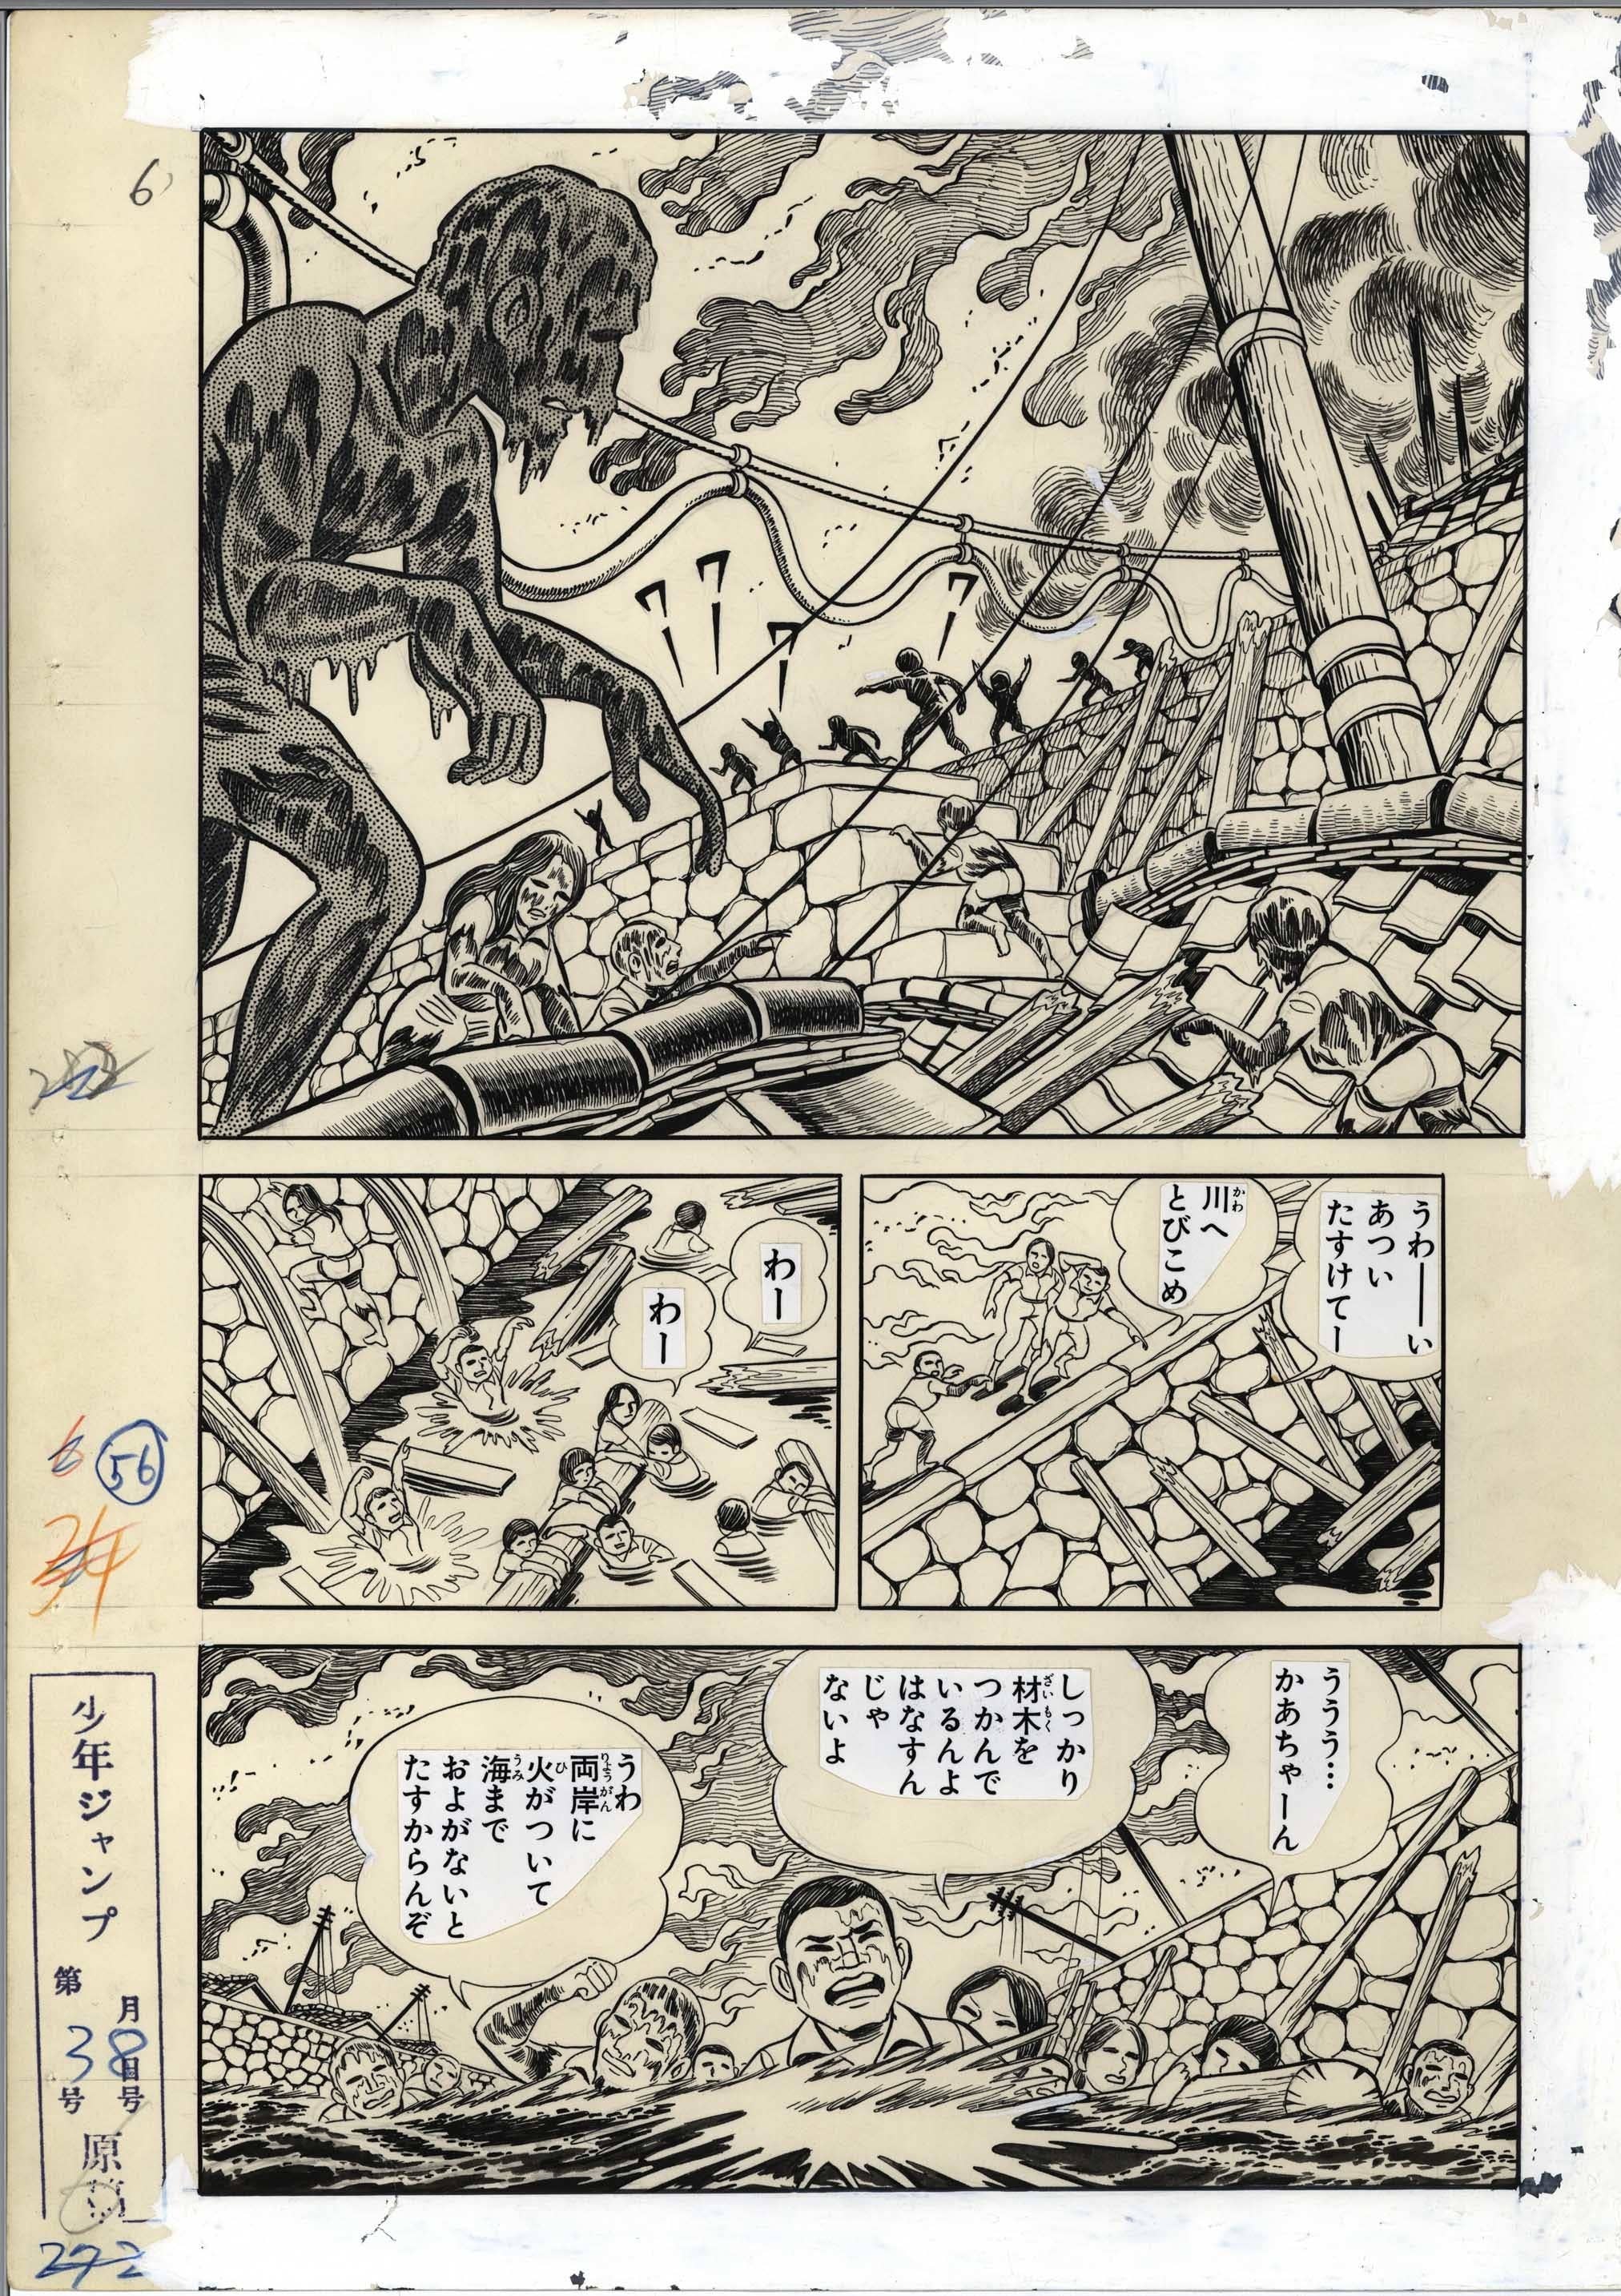 6
ワ ワ ワ ワ
うわーーい
あつい
たすけてー
川へ
かわ
とびこめ
わー
わー
ううう…
かあちゃーん
しっかり
材木を
ざいもく
つかんで
いるんよ
はなすん
じゃ
ないよ
うわ
両岸に
りょうがん
火がついて
ひ
海まで
うみ
およがないと
たすからんぞ
6
56
少年ジャンプ
月8日号
第38号
原稿
272